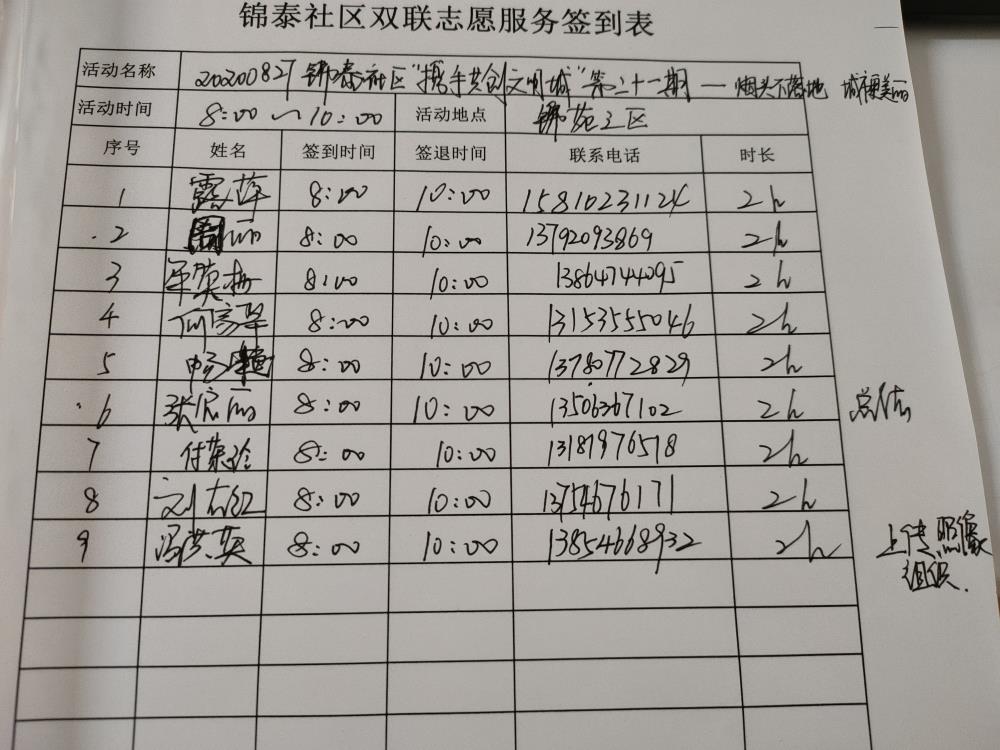 锦泰社区双联志愿服务签到表
活动名称 20200827锦泰社区"携手共创文明城"第二十一期—烟头不落地 城市更美丽
活动时间 8:00～10:00 活动地点 锦苑三区
序号 姓名 签到时间 签退时间 联系电话 时长
1 8:00 10:00 15810231124 2h
2 周丽 8:00 10:00 13792093869 2h
3 英梅 8:00 10:00 13864744095 2h
4 8:00 10:00 13153555046 2h
5 8:00 10:00 13780772829 2h
6 张宏丽 8:00 10:00 13506367102 2h 总结
7 付荣玲 8:00 10:00 13181976518 2h
8 刘志红 8:00 10:00 13754676171 2h
9 冯英 8:00 10:00 13854668932 2h 上传照像
组织.